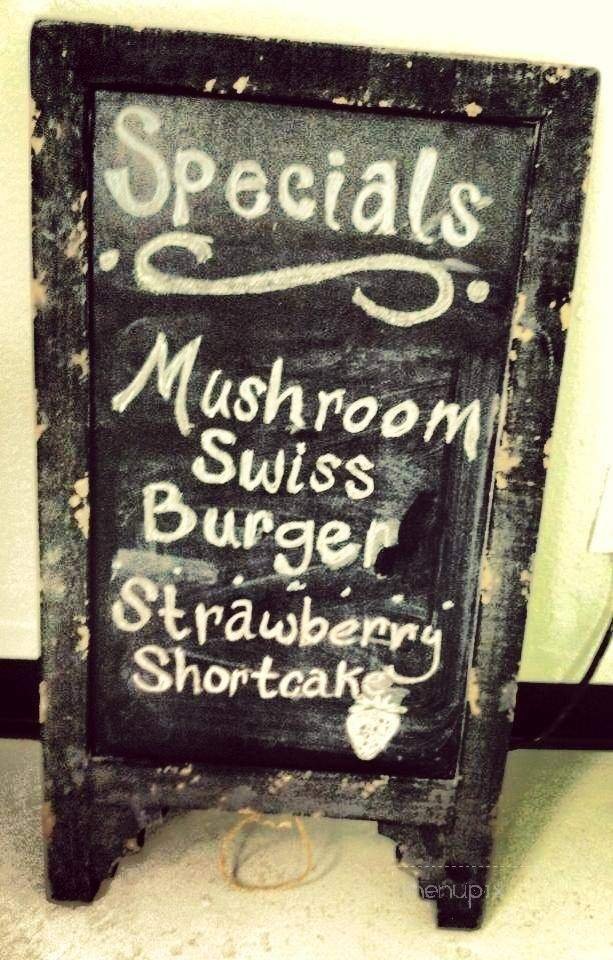 Specials
Mushroom
Swiss
Burger
Strawberry
Shortcake
menupix